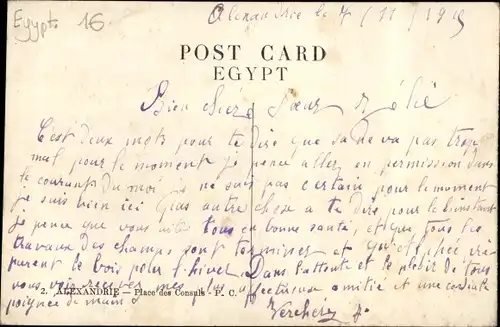 Egypte 16
Alexandrie le 4/11/1915
POST CARD
EGYPT
Bien chère Sœur Zélie
C'est deux mots pour te dire que sa ne va pas trop
mal pour le moment je pense aller en permission dans
le courants du moi je ne suis pas certain pour le moment
je suis bien ici Pas autre chose a te dire pour l'instant
je pense que vous êtes tous en bonne santé, et que tous les
travaux des champs sont terminer et qu'elphée
parent le bois pour l'hiver Dans l'attente et le plésir de tous
vous voir recevez mes plus affectueux amitié et une cordiale
poignée de main
2. ALEXANDRIE — Place des Consuls - P. C.